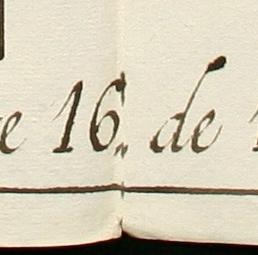 e 16. de